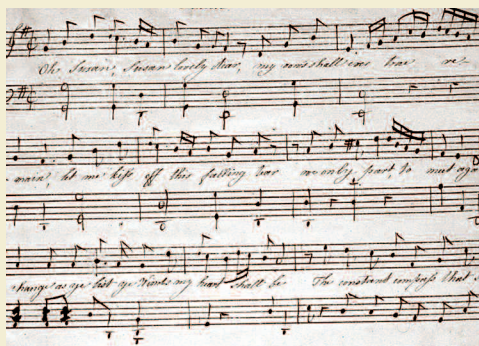 Oh Susan, Susan lovely dear, my vows shall ever true re
main, let me kiss off that falling tear we only part to meet aga
change as ye list ye Winds my heart shall be The constant compass that s